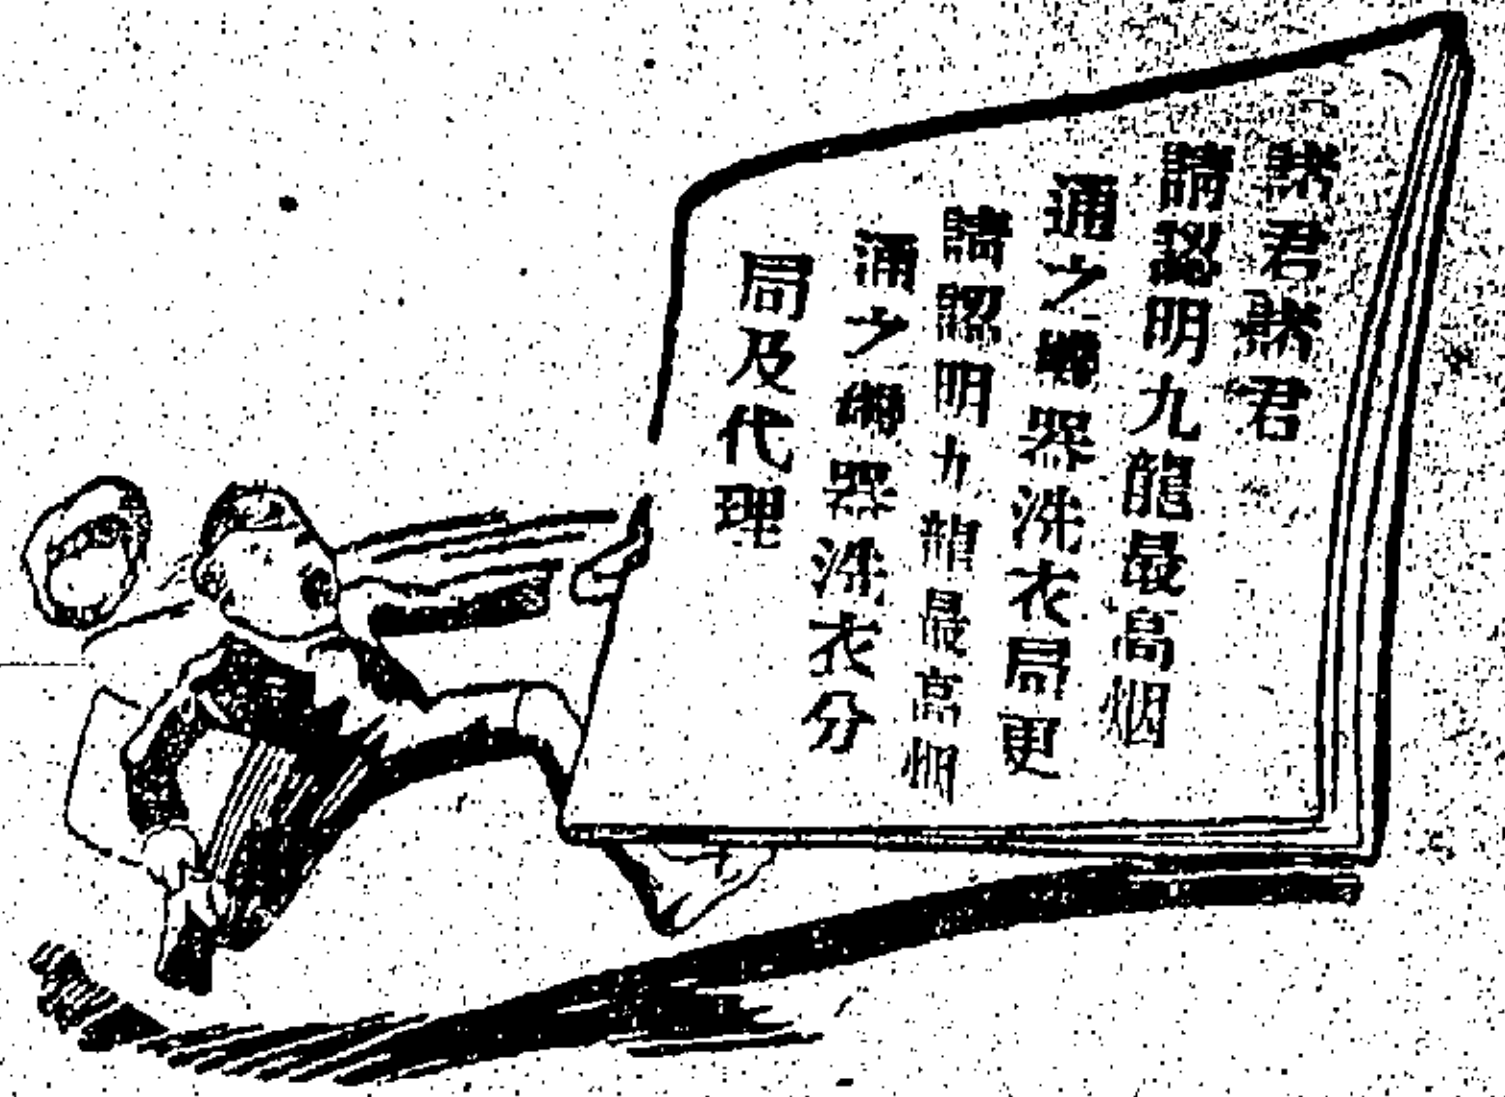 諸君諸君
請認明九龍最高烟
通之機器洗衣局更
請認明九龍最高烟
通之機器洗衣分
局及代理